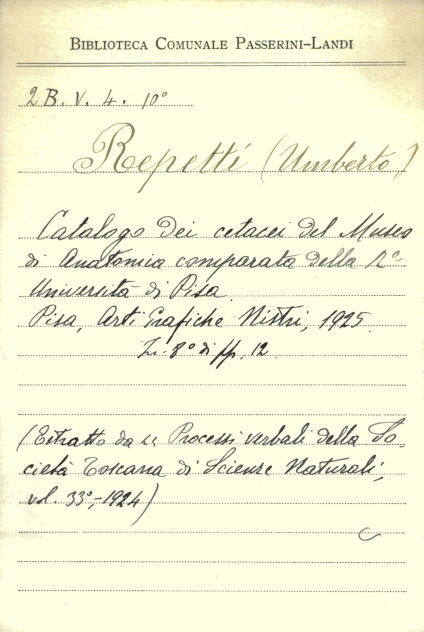 BIBLIOTECA COMUNALE PASSERINI-LANDI
2 B. V. 4. 10°
Repetti (Umberto)
Catalogo dei cetacei del Museo
di Anatomia comparata della R.ª
Università di Pisa.
Pisa, Arti Grafiche Nistri, 1925.
In-8° di pp. 12
(Estratto da Processi verbali della So-
cietà Toscana di Scienze Naturali,
vol. 33°,-1924)